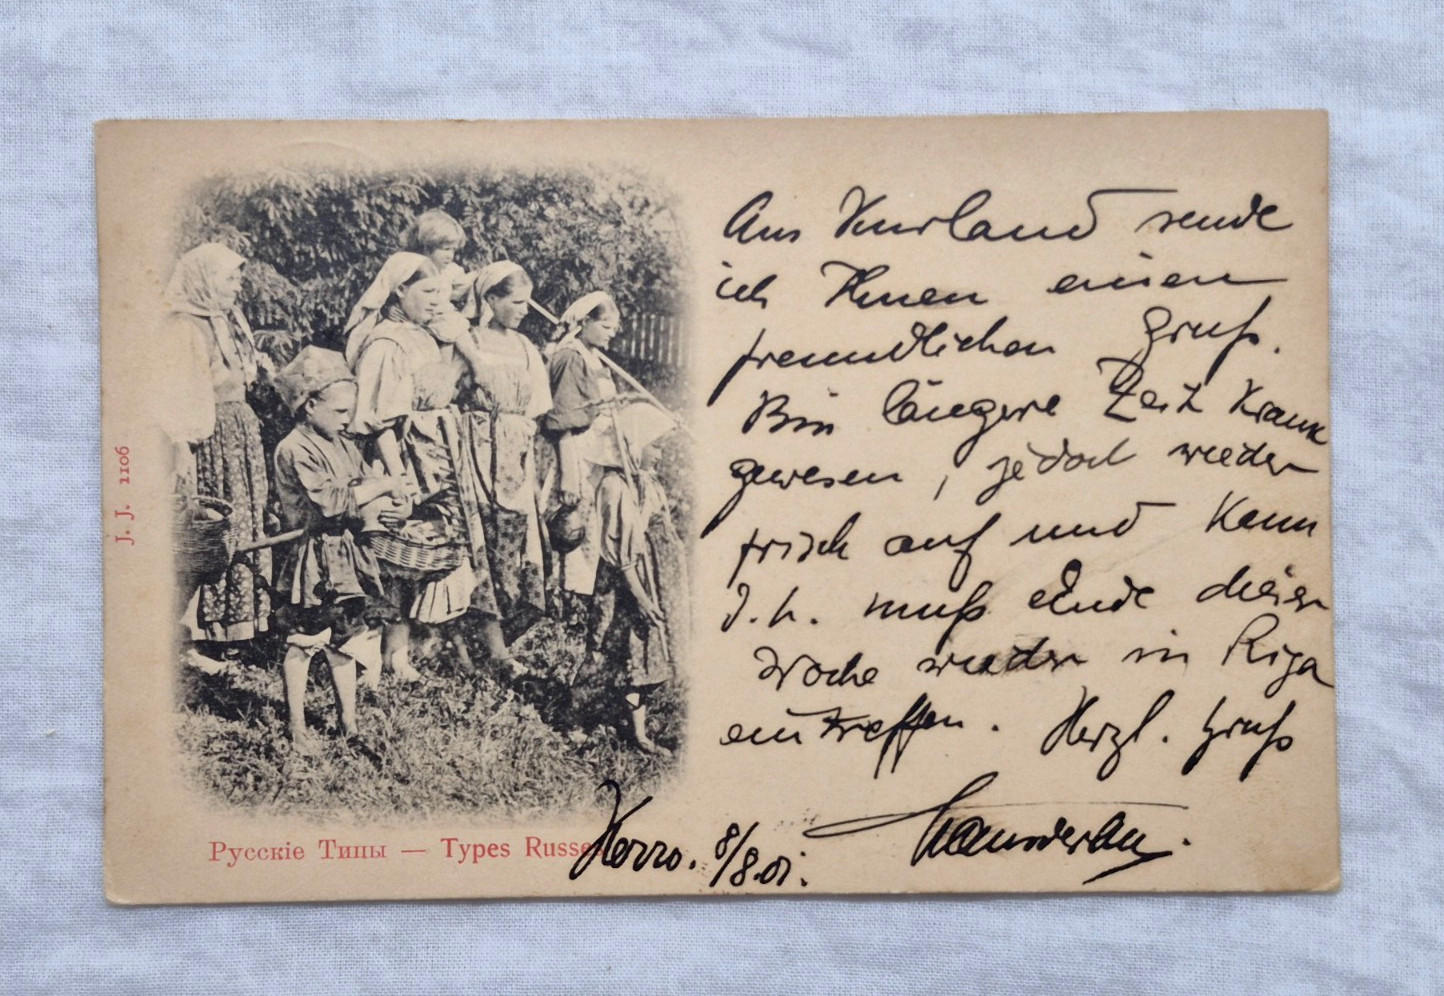 Aus Kurland sende
ich Ihnen einen
freundlichen Gruß.
Bin längere Zeit krank
gewesen, jedoch wieder
frisch auf und kann
d.h. muß Ende dieser
Woche wieder in Riga
eintreffen. Herzl. Gruß
8/8.01.
Русскіе Типы — Types Russes
J. J. 1106